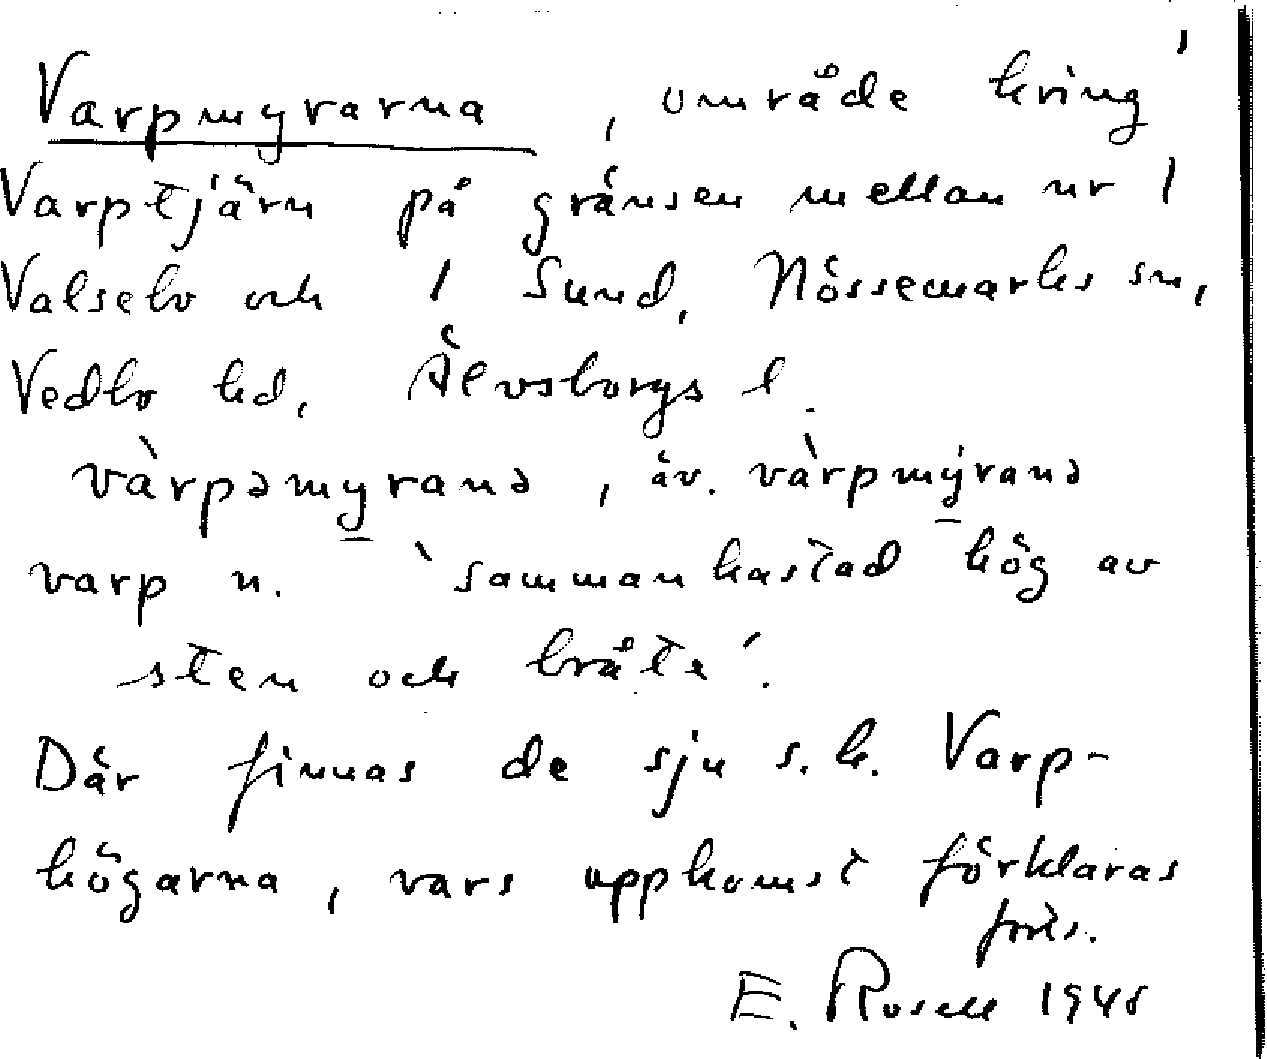 1
Varpmyrarna, område kring
Varptjärn på gränsen mellan nr 1
Valsebo och 1 Sund, Nössemarks sn,
Vedbo hd, Älvsborgs l.
vàrpəmy̲ranə, äv. vàrpmy̲ranə
varp n. `sammankastad hög av
sten och bråte´.
Där finnas de sju s.k. Varp-
högarna, vars uppkomst förklaras
forts.
E. Rosell 1945